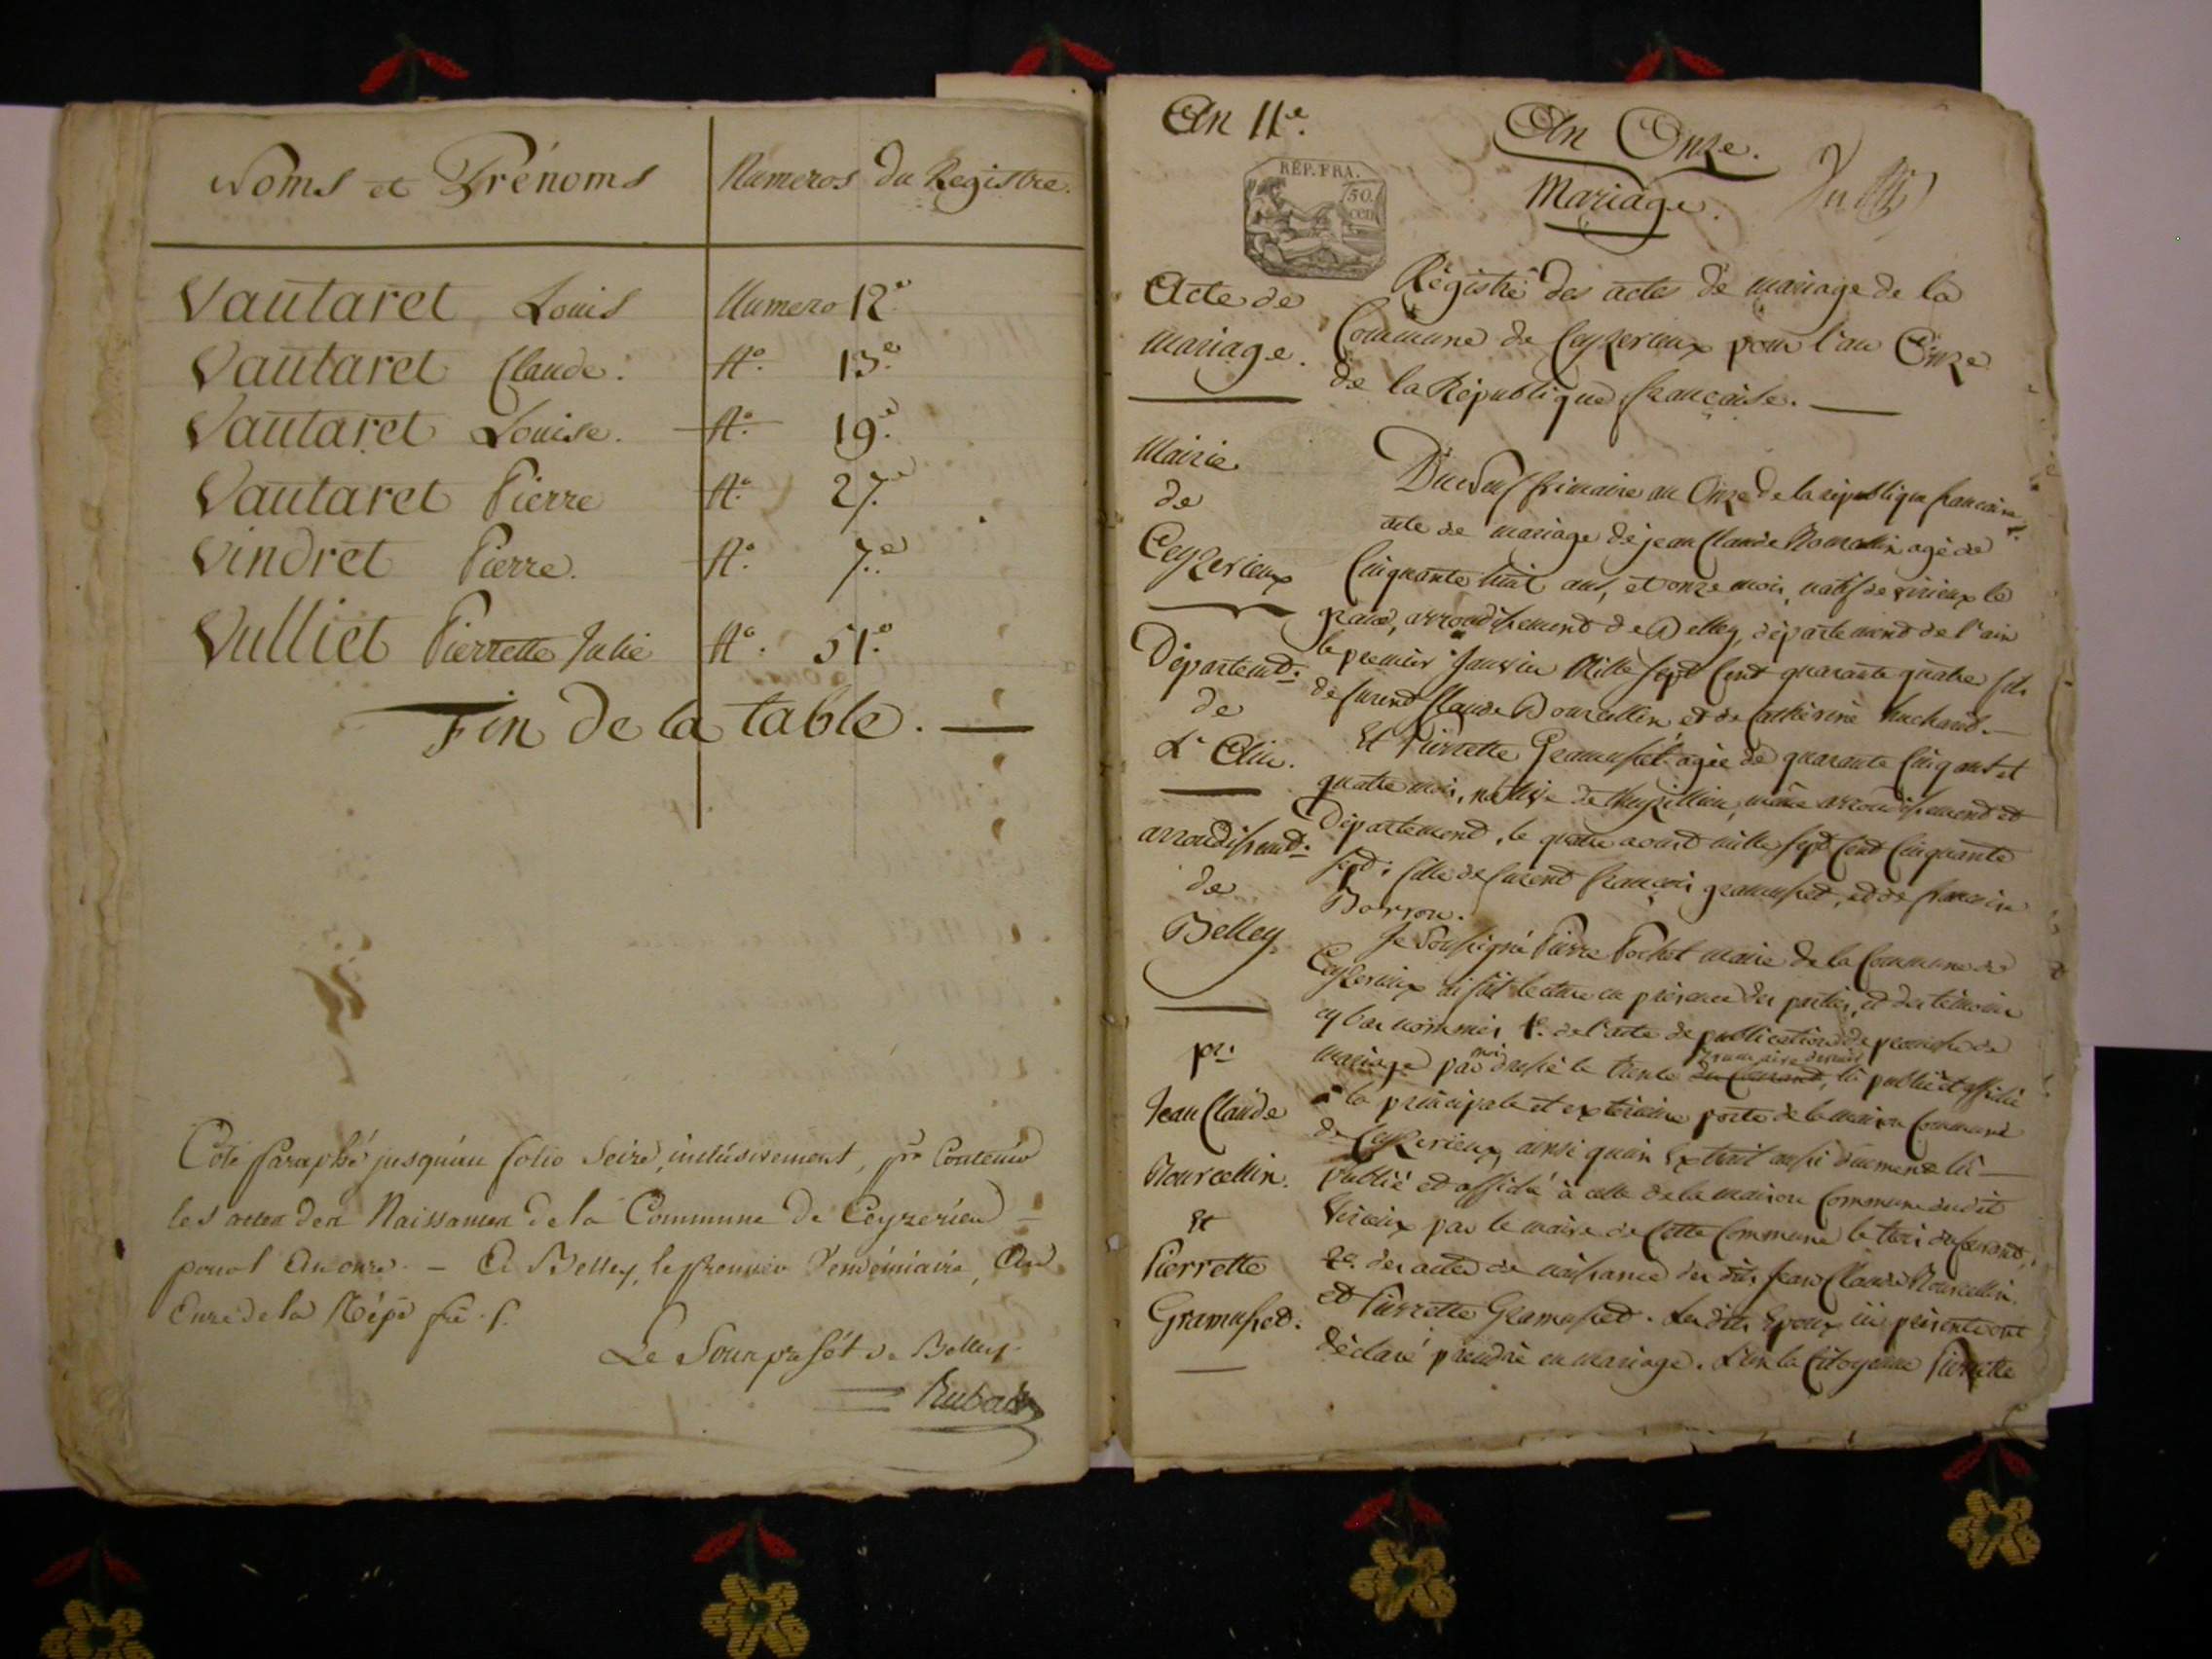 Noms et Prénoms
Numeros du Registre.
Vautaret Louis Numero 12.e
Vautaret Claude. No. 13.e
Vautaret Louise. No. 19.e
Vautaret Pierre No. 27.e
Vindret Pierre. No. 7.e
Vulliet Pierrette Julie No. 51.e
Fin de la table.
Coté paraphé jusqu'au folio Seize, inclusivement, pr Contenir
les actes des Naissances de la Commune de Ceyzerieu
pour l'an onze. - A Belley, le premier Vendémiaire, An
Onze de la Rép. fr.
Le Sous préfét de Belley.
An 11e.
An Onze.
Mariage.
RÉP. FRA.
50.
cen
Acte de
mariage.
Régistre des actes de mariage de la
Commune de Ceyzerieux pour l'an Onze
de la République française.
Mairie
de
Ceyzerieux
Départemt.
de
L'Ain.
arrondissemt.
de
Belley
pr.
Jean Claude
Mourcellin.
Et
Pierrette
Gramusset.
Du neuf frimaire an Onze de la république francaise
acte de mariage de jean Claude agé de
Cinquante huit ans, et onze mois, natif de virieux le
grand, arrondissement de Belley, département de l'ain
le premier Janvier Mille sept Cent quarante quatre fils
de furent Claude et de Cathérine
Et Pierrette Gramusset agée de quarante Cinq ans et
quatre mois, native de même arrondissement et
Département, le quatre aoust mille sept Cent Cinquante
sept; fille de furent françois gramusset, et de
Borron.
Je Soussigné Pierre Pochet maire de la Commune de
Ceyzerieux ai fait lecture en présence des parties, et des témoins
cy bas nommés 1o. de l'acte de publication de promesse de
mariage par moi dressé le trente du Courant brumaire dernier, lü publié et affiché
à la principale et extérieure porte de la maison Commune
de Ceyzerieux, ainsi qu'un Extrait aussi duement lü
publié et affiché à celle de la maison Commune dudit
Virieux par le maire de Cette Commune le trois du courant,
2o. des actes de naissance des dits Jean Claude Mourcellin
et Pierrette Gramusset. Lesdits Epoux ici présents ont
déclaré prendre en mariage. L'un la Citoyenne Pierrette